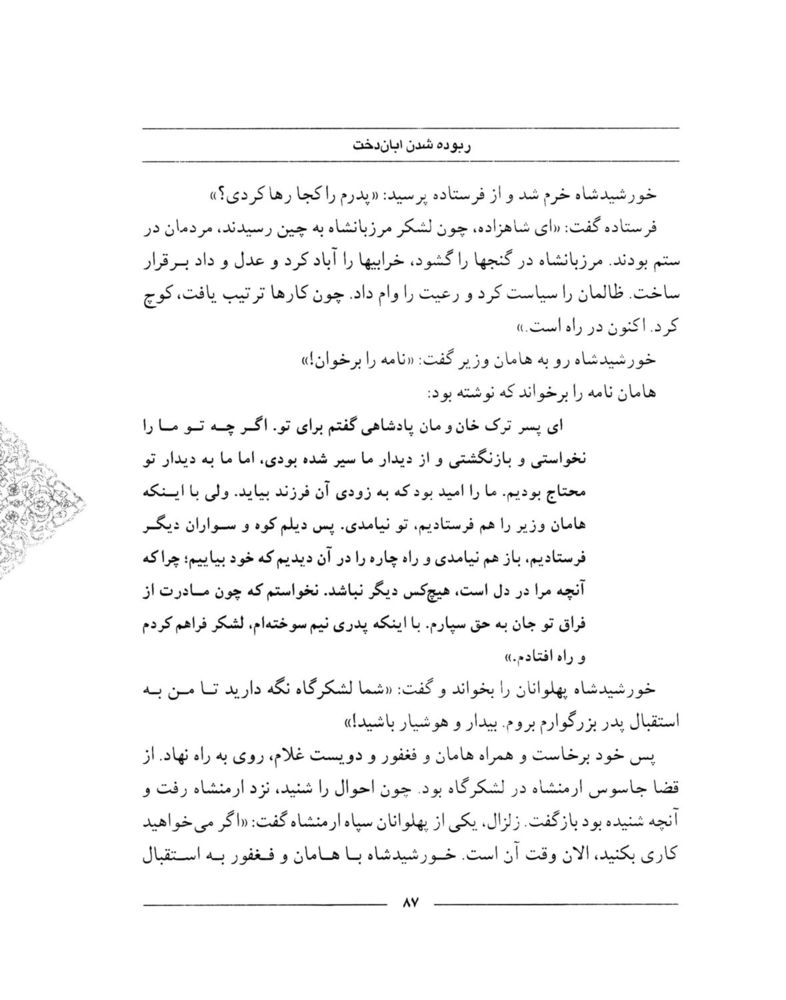 ربوده شدن ابان‌دخت
خورشیدشاه خرم شد و از فرستاده پرسید: «پدرم را کجا رها کردی؟»
فرستاده گفت: «ای شاهزاده، چون لشکر مرزبانشاه به چین رسیدند، مردمان در
ستم بودند. مرزبانشاه در گنجها را گشود، خرابیها را آباد کرد و عدل و داد برقرار
ساخت. ظالمان را سیاست کرد و رعیت را وام داد. چون کارها ترتیب یافت، کوچ
کرد. اکنون در راه است.»
خورشیدشاه رو به هامان وزیر گفت: «نامه را برخوان!»
هامان نامه را برخواند که نوشته بود:
ای پسر ترک خان و مان پادشاهی گفتم برای تو. اگر چه تو ما را
نخواستی و بازنگشتی و از دیدار ما سیر شده بودی، اما ما به دیدار تو
محتاج بودیم. ما را امید بود که به زودی آن فرزند بیاید. ولی با اینکه
هامان وزیر را هم فرستادیم، تو نیامدی. پس دیلم کوه و سواران دیگر
فرستادیم، باز هم نیامدی و راه چاره را در آن دیدیم که خود بیاییم؛ چرا که
آنچه مرا در دل است، هیچ‌کس دیگر نباشد. نخواستم که چون مادرت از
فراق تو جان به حق سپارم. با اینکه پدری نیم سوخته‌ام، لشکر فراهم کردم
و راه افتادم.»
خورشیدشاه پهلوانان را بخواند و گفت: «شما لشکرگاه نگه دارید تا من به
استقبال پدر بزرگوارم بروم. بیدار و هوشیار باشید!»
پس خود برخاست و همراه هامان و فغفور و دویست غلام، روی به راه نهاد. از
قضا جاسوس ارمنشاه در لشکرگاه بود. چون احوال را شنید، نزد ارمنشاه رفت و
آنچه شنیده بود بازگفت. زلزال، یکی از پهلوانان سپاه ارمنشاه گفت: «اگر می‌خواهید
کاری بکنید، الان وقت آن است. خورشیدشاه با هامان و فغفور به استقبال
۸۷